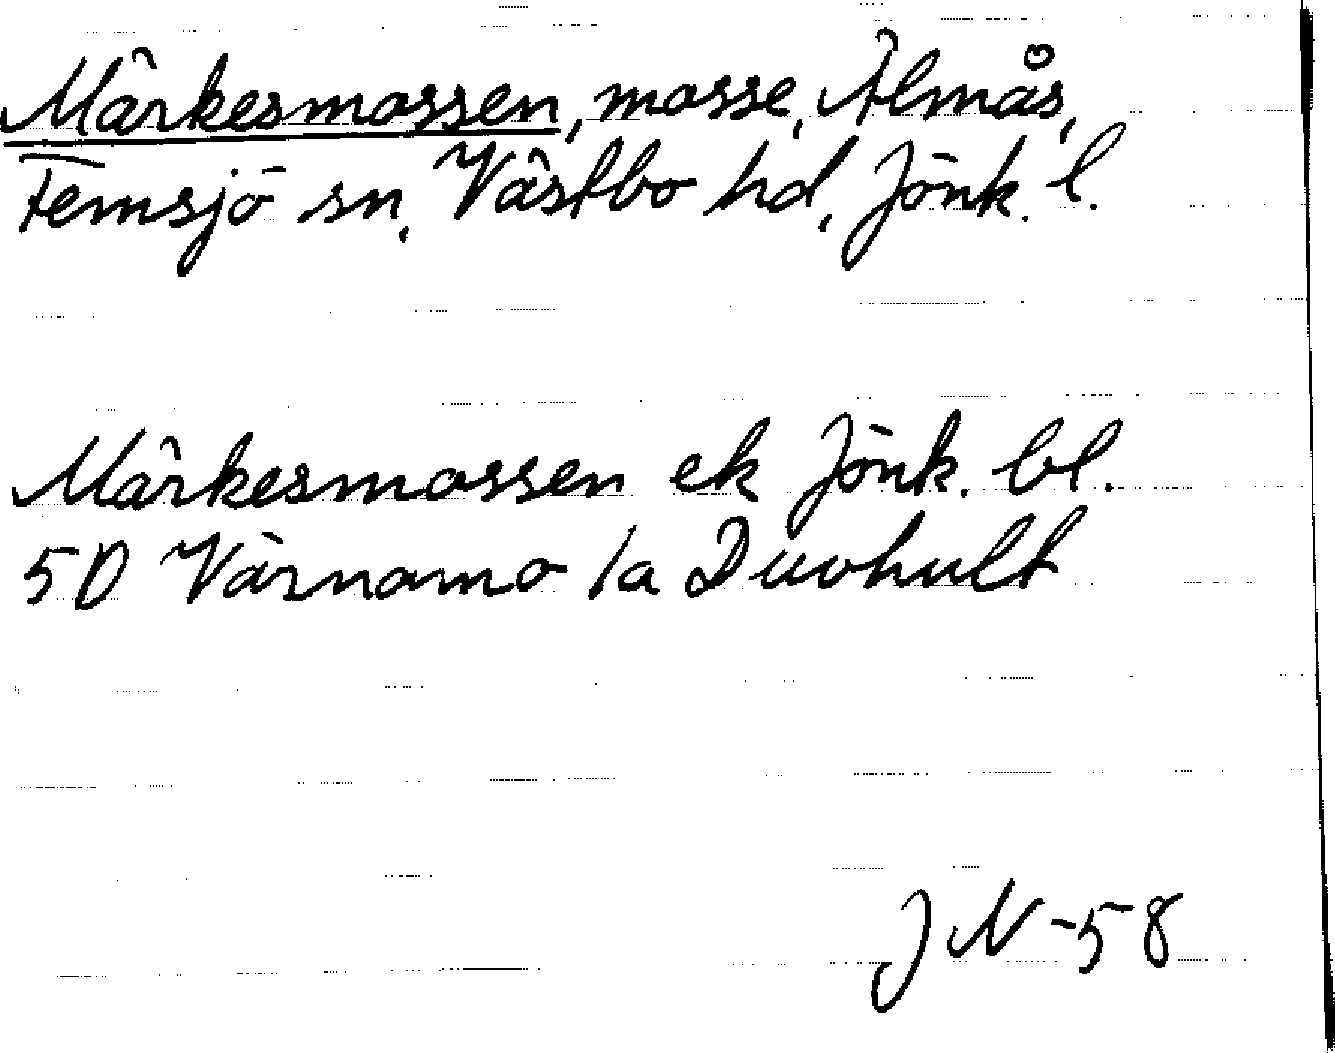 Märkesmossen, mosse, Älmås,
Femsjö sn, Västbo hd, Jönk. l.
Märkesmossen ek Jönk. bl.
5D Värnamo 1a Duvhult
JN-58